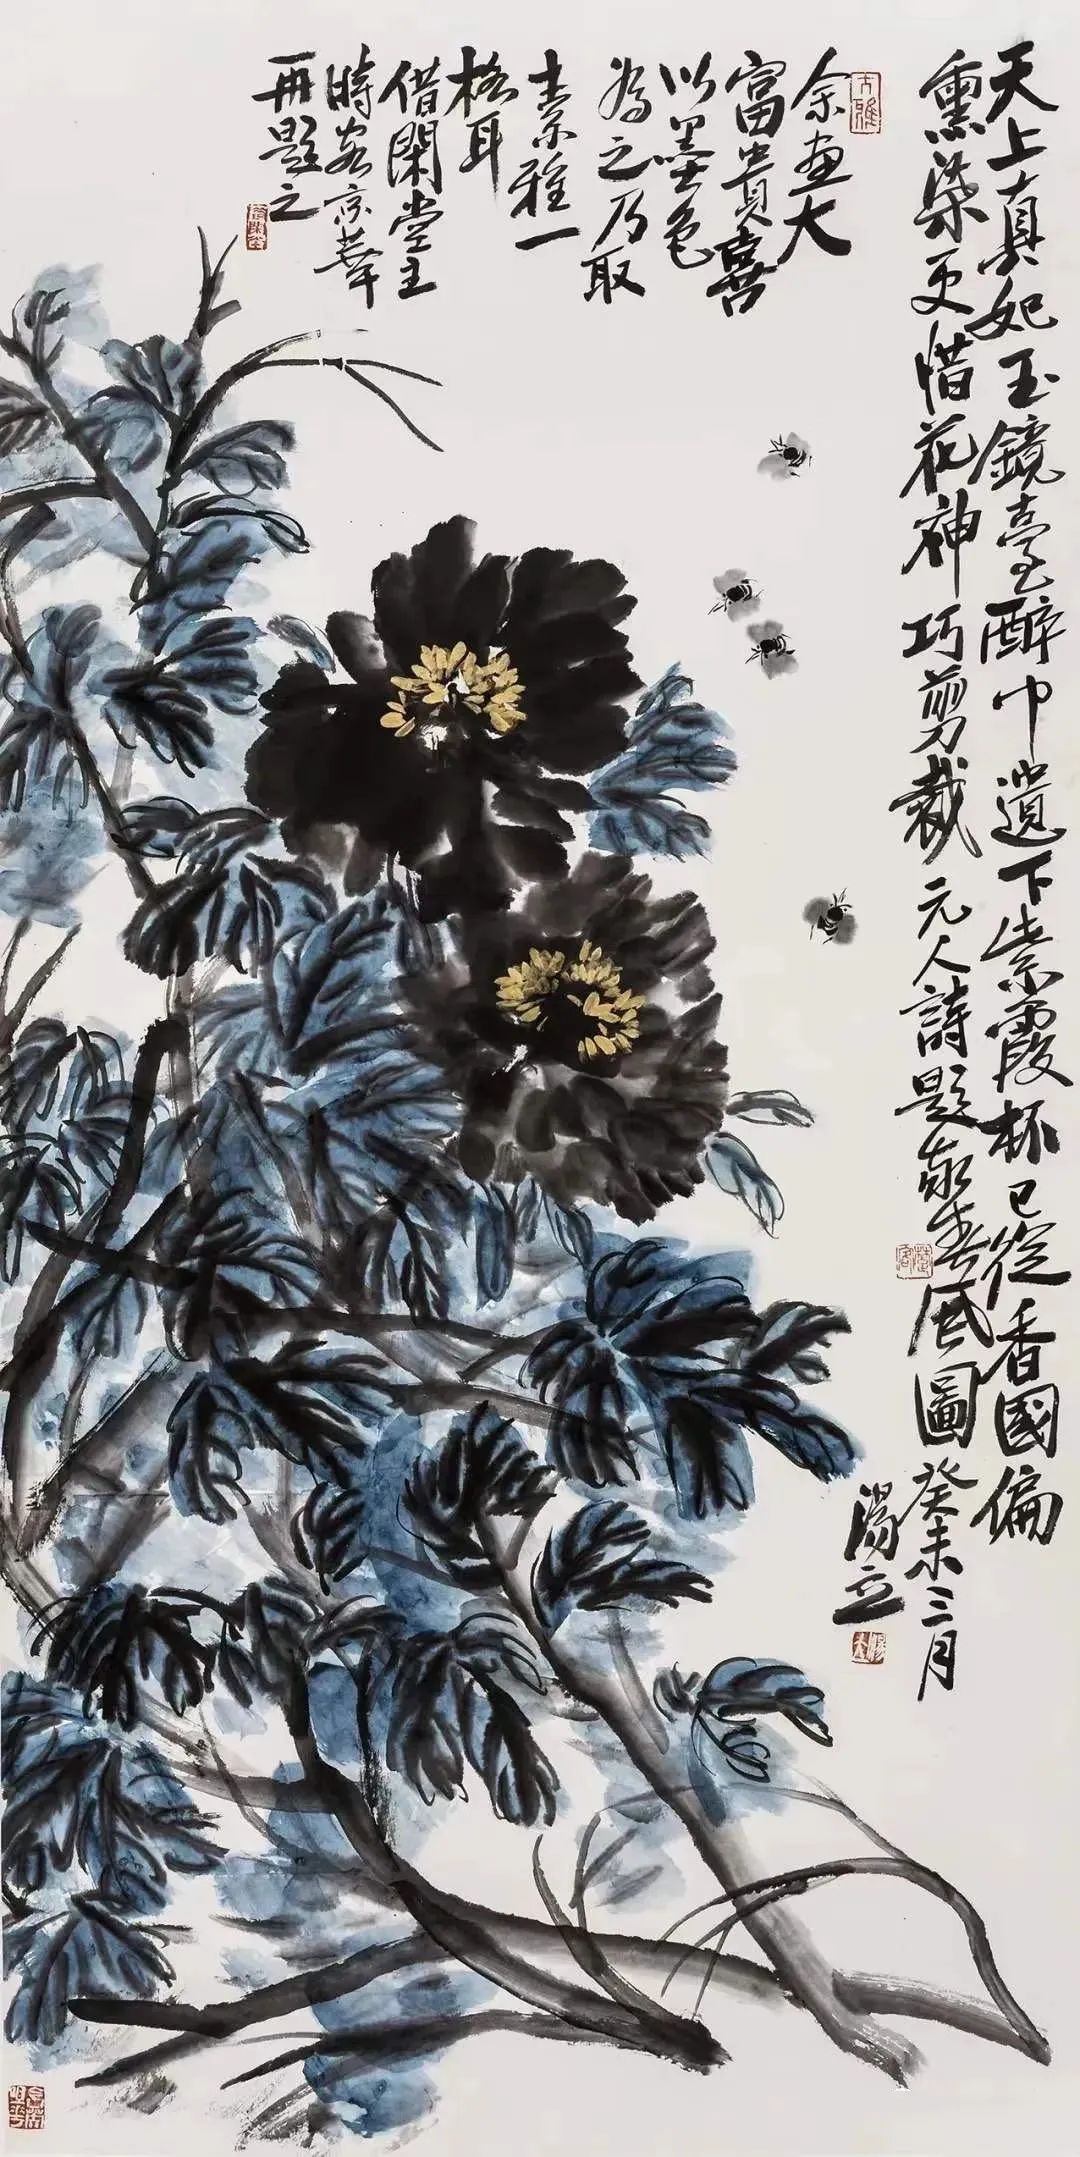 天上真妃玉鏡臺醉中遺下紫霞杯已從香國偏
熏染更惜花神巧剪裁 元人詩題春風圖 癸未三月
湯立
余畫大
富貴喜
以墨色
為之乃取
素雅一
格耳
借閑堂主
時客京華
再題之